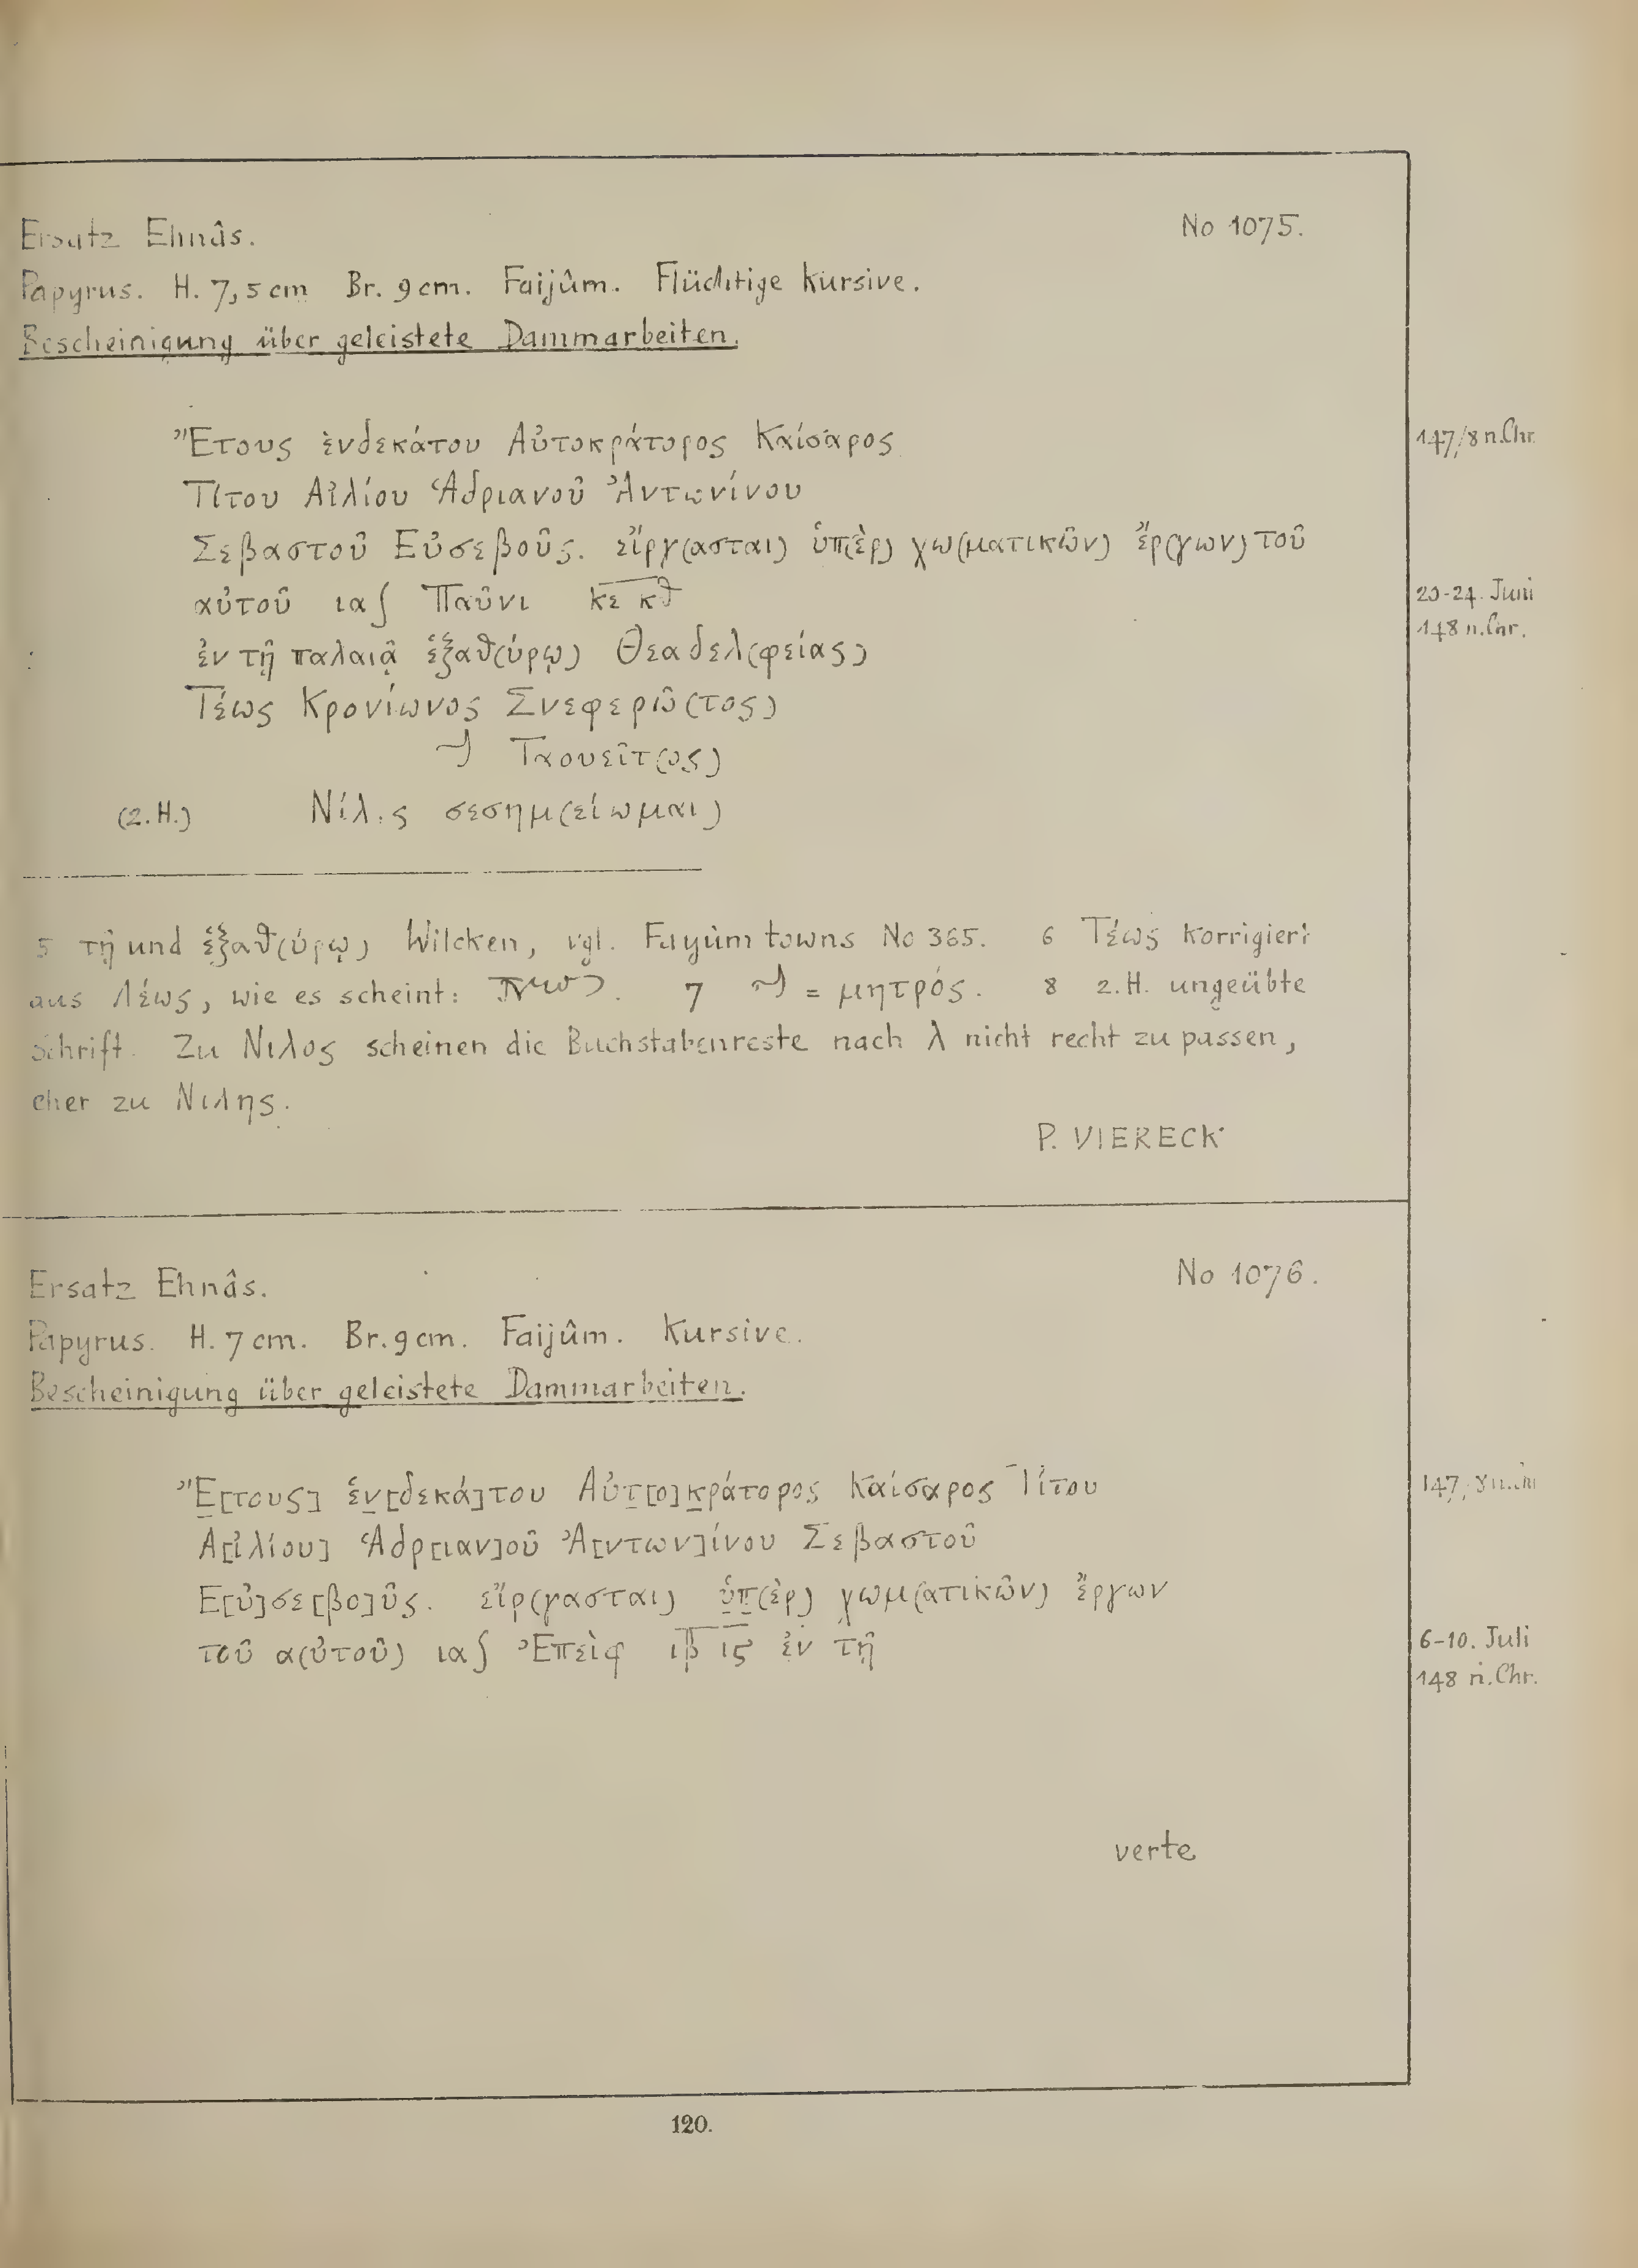 Ersatz Ehnâs. No 1075.
Papyrus. H. 7,5 cm Br. 9 cm. Faijûm. Flüchtige Kursive.
Bescheinigung über geleistete Dammarbeiten.
Ἔτους ἑνδεκάτου Αὐτοκράτορος Καίσαρος 147/8 n. Chr.
Τίτου Αἰλίου Ἁδριανοῦ Ἀντωνίνου
Σεβαστοῦ Εὐσεβοῦς. εἴργ(ασται) ὑπ(ὲρ) χω(ματικῶν) ἔρ(γων) τοῦ
αὐτοῦ ια∫ Παῦνι κε κθ
ἐν τῇ παλαιᾷ ἑξαθ(ύρῳ) Θεαδελ(φείας)
Τέως Κρονίωνος Σνεφερῶ(τος)
Ταουεῖτ(ος)
(2. H.) Νίλ.ς σεσημ(είωμαι)
Juni
148 n. Chr.
5 τῇ und ἑξαθ(ύρῳ) Wilcken, vgl. Fayûm towns No 365. 6 Τέως korrigiert
aus Λέως, wie es scheint: 7 = μητρός. 8 2. H. ungeübte
Schrift. Zu Νιλος scheinen die Buchstabenreste nach λ nicht recht zu passen,
eher zu Νιλης.
P. VIERECK
Ersatz Ehnâs. No 1076.
Papyrus. H. 7 cm. Br. 9 cm. Faijûm. Kursive.
Bescheinigung über geleistete Dammarbeiten.
Ἔ[τους] ἑν[δεκά]του Αὐτ[ο]κράτορος Καίσαρος Τίτου
Α[ἰλίου] Ἁδρ[ιαν]οῦ Ἀ[ντων]ίνου Σεβαστοῦ
Ε[ὐ]σε[βο]ῦς. εἴρ(γασται) ὑπ(ὲρ) χωμ(ατικῶν) ἔργων
τοῦ α(ὐτοῦ) ια∫ Ἐπεὶφ ιβ ιϛ ἐν τῇ 6-10. Juli
148 n. Chr.
verte
120.